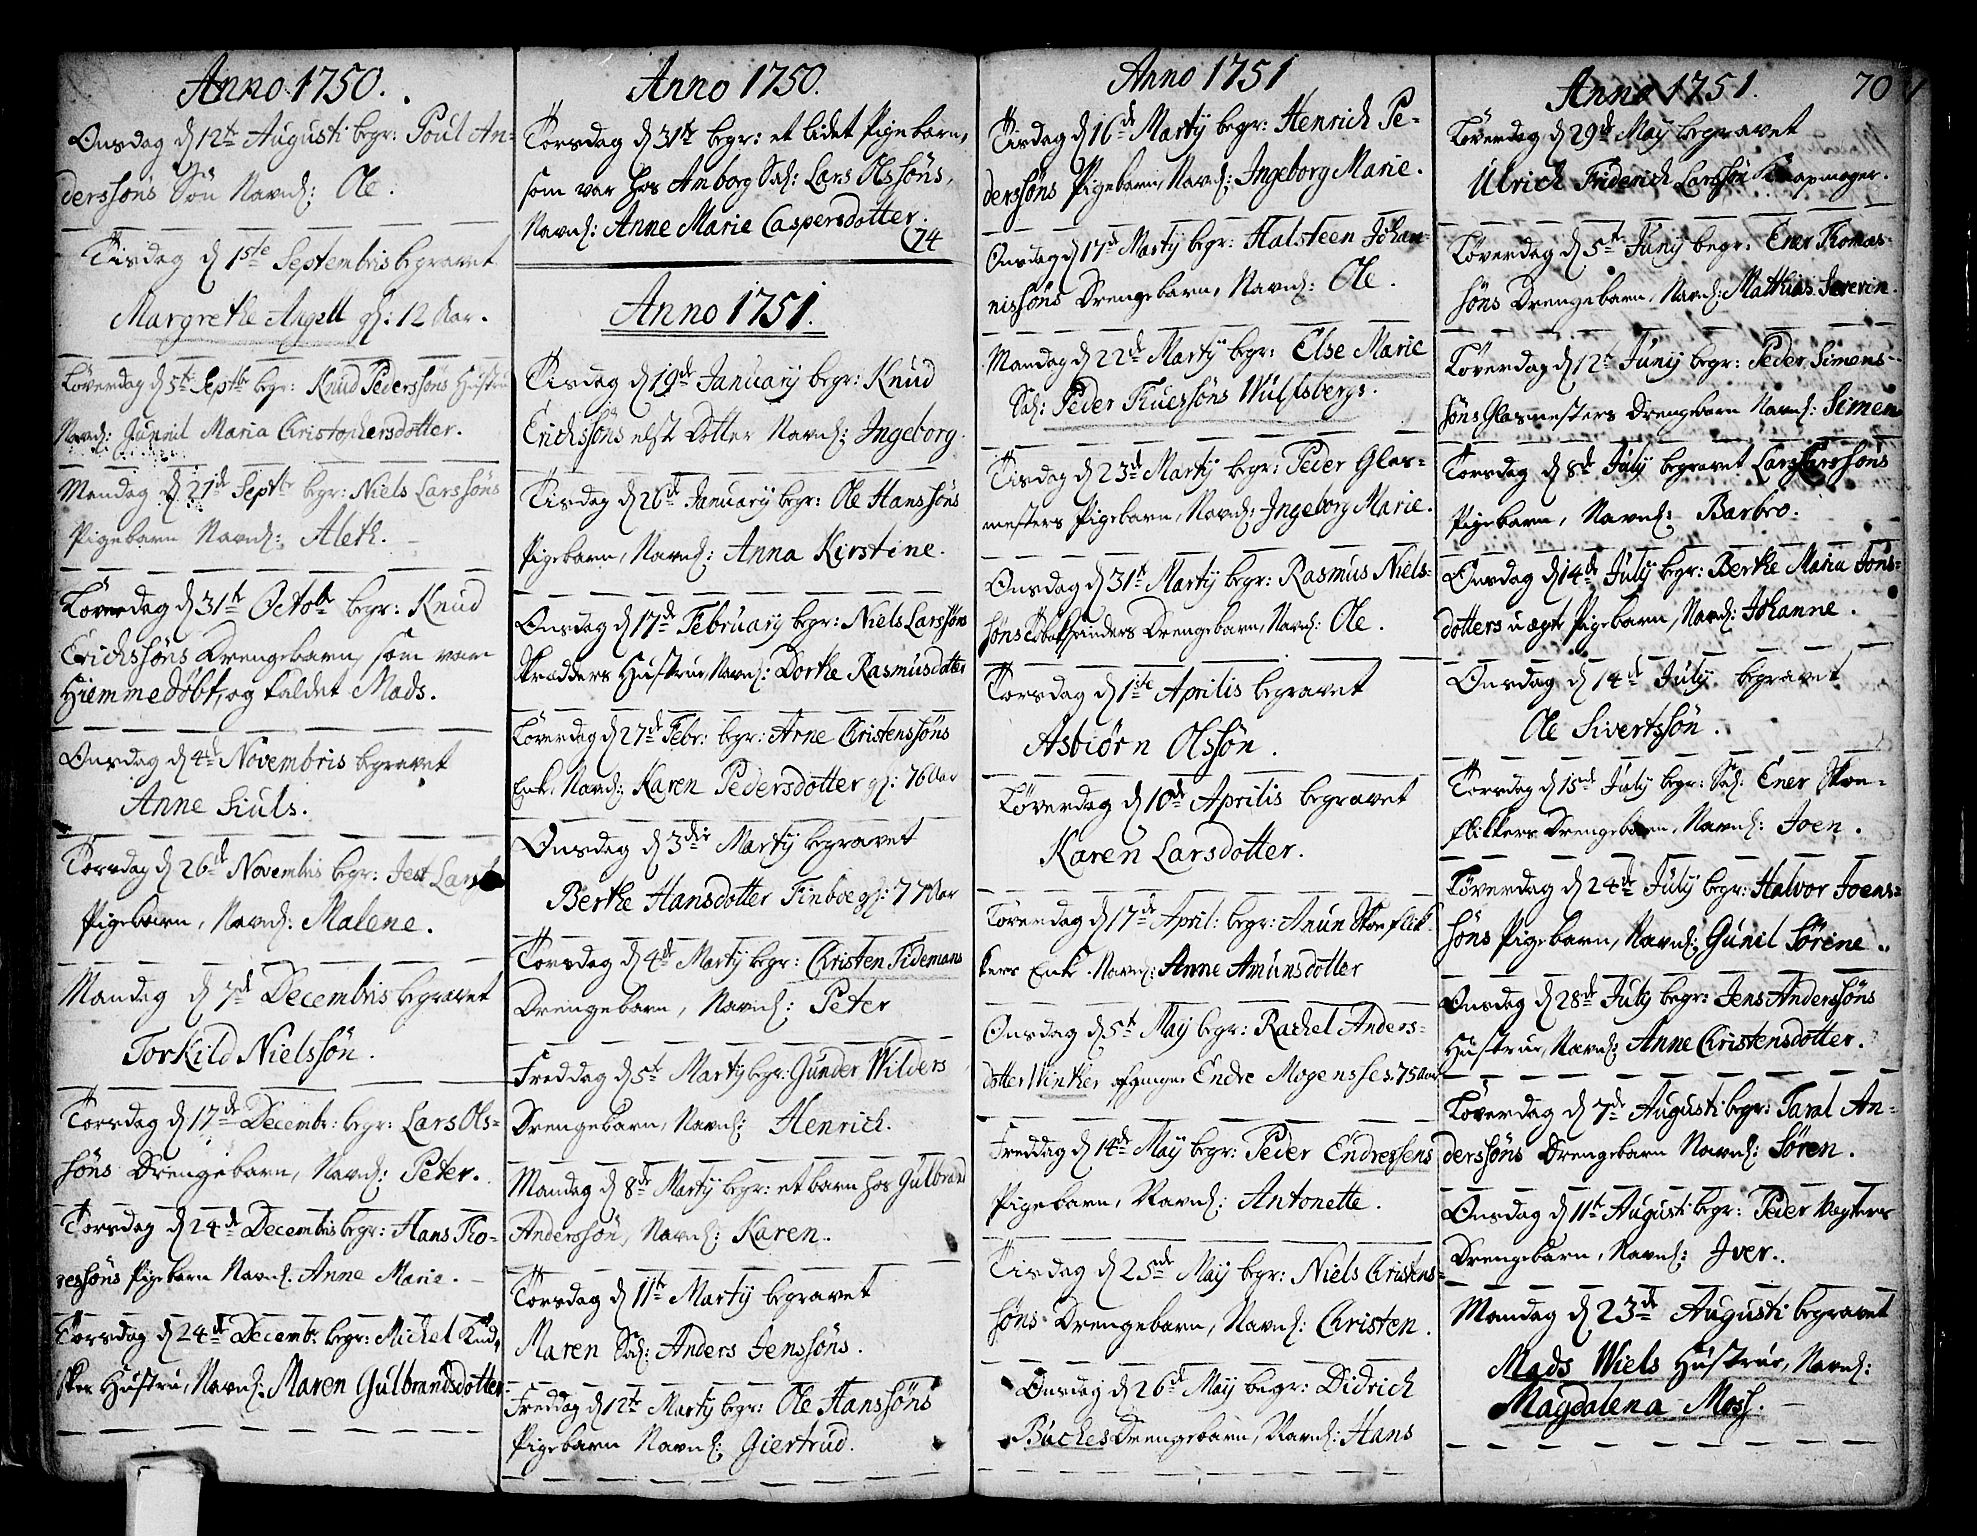 Anno 1750.
Onsdag d 12te Augusti begr: Poul An-
derssøns Søn Navnl: Ole.
Tisdag d 1ste Septembris begravet
Margrethe Angell gl: 12 Aar.
Løverdag d 5te Septbr begr: Knud Pederssøns Hustru
Navnl: Gunnil Maria Christophersdotter.
Mandag d 21de Septbr begr: Niels Larssøns
Pigebarn Navnl: Aleth.
Løverdag d 31te Octobr begr: Knud
Erichssøns Drengebarn, som var
Hiemmedøbt, og kaldet Mads.
Onsdag d 4de Novembris begravet
Anne Siuls.
Torsdag d 26de Novembris begr:
Pigebarn, Navnl: Malene.
Mandag d 7de Decembris begravet
Torkild Nielssøn.
Torsdag d 17de Decembr: begr: Lars Ols-
søns Drengebarn, Navnl: Peter.
Torsdag d 24de Decembris begr: Hans Tho-
ressøns Pigebarn Navnl: Anne Marie.
Torsdag d 24de Decemb: begr: Michel
Hustru, Navnl: Maren Gulbrandsdotter
Anno 1750.
Torsdag d 31te begr: et lidet Pigebarn,
som var hos Amborg Sal: Lars Olssøns,
Navnl: Anne Marie Caspersdotter.
(74
Anno 1751.
Tisdag d 19de January begr: Knud
Erichssøns elst Dotter Navnl: Ingeborg.
Tisdag d 26de January begr: Ole Hanssøns
Pigebarn, Navnl: Anna Kirstine.
Onsdag d 17de February begr: Niels Larssøns
Skrædders Hustrue, Navnl: Dorthe Rasmusdotter
Løverdag d 27de Febr: begr: Arne Christenssøns
Enke, Navnl: Karen Pedersdotter gl: 76 Aar
Onsdag d 3die Marty begravet
Berthe Hansdotter Finboe gl: 77 Aar
Torsdag d 4de Marty begr: Christen Tidemans
Drengebarn, Navnl: Peter
Freddag d 5te Marty begr: Gunder Wilders
Drengebarn, Navnl: Henrich.
Mandag d 8de Marty begr: et barn hos Gulbrand
Anderssøn, Navnl: Karen.
Torsdag d 11te Marty begravet
Maren Sal: Anders Jenssøns.
Freddag d 12te Marty begr: Ole Hanssøns
Pigebarn Navnl: Giertrud.
Anno 1751
Tisdag d 16de Marty begr: Henrich Pe-
derssøns Pigebarn, Navnl: Ingeborg Marie.
Onsdag d 17de Marty begr: Halsteen Johan-
nissøns Drengebarn, Navnl: Ole.
Mandag d 22de Marty begr: Else Marie
Sal: Peder Truessøns Wulfsbergs.
Tisdag d 23de Marty begr: Peder Glas-
mesters Pigebarn, Navnl: Ingeborg Marie.
Onsdag d 31te Marty begr: Rasmus Niels-
søns Drengebarn, Navnl: Ole.
Torsdag d 1ste Aprilis begravet
Asbiørn Olssøn.
Løverdag d 10de Aprilis begravet
Karen Larsdotter.
Løverdag d 17de April: begr: Anun Skoeflik-
kers Enke. Navnl: Anne Amunsdotter
Onsdag d 5te May begr: Rachel Anders-
dotter Winther afgangne Endre Mogenss 75 Aar
Freddag d 14de May begr: Peder Endressens
Pigebarn, Navnl: Antonette.
Tisdag d 25de May begr: Niels Christens-
søns Drengebarn, Navnl: Christen.
Onsdag d 26de May begr: Didrich
Buches Drengebarn, Navnl: Hans
Anno 1751. 70
Løverdag d 29de May begravet
Ulrich Friderich Larssøn Knapmager.
Løverdag d 5te Juny begr: Ener Thomas-
søns Drengebarn, Navnl: Mathias Severin.
Løverdag d 12te Juny begr: Peder Simens-
søns Glasmesters Drengebarn Navnl: Simen
Torsdag d 8de July begravet Lars Larssøns
Pigebarn, Navnl: Barbro.
Onsdag d 14de July begr: Berthe Maria Jons-
dotters uægte Pigebarn, Navnl: Johanne.
Onsdag d 14de July begravet
Ole Sivertssøn.
Torsdag d 15de July begr: Sal: Ener Skoe-
flikkers Drengebarn, Navnl: Joen.
Løverdag d 24de July begr: Halvor Joens-
søns Pigebarn, Navnl: Gunil Sørine.
Onsdag d 28de July begr: Jens Anderssøns
Hustrue, Navnl: Anne Christensdotter.
Løverdag d 7de Augusti begr: Taral An-
derssøns Drengebarn Navnl: Søren.
Onsdag d 11te Augusti begr: Peder Vægters
Drengebarn, Navnl: Iver.
Mandag d 23de Augusti begravet
Mads Wiels Hustrue, Navnl:
Magdalena Moss.